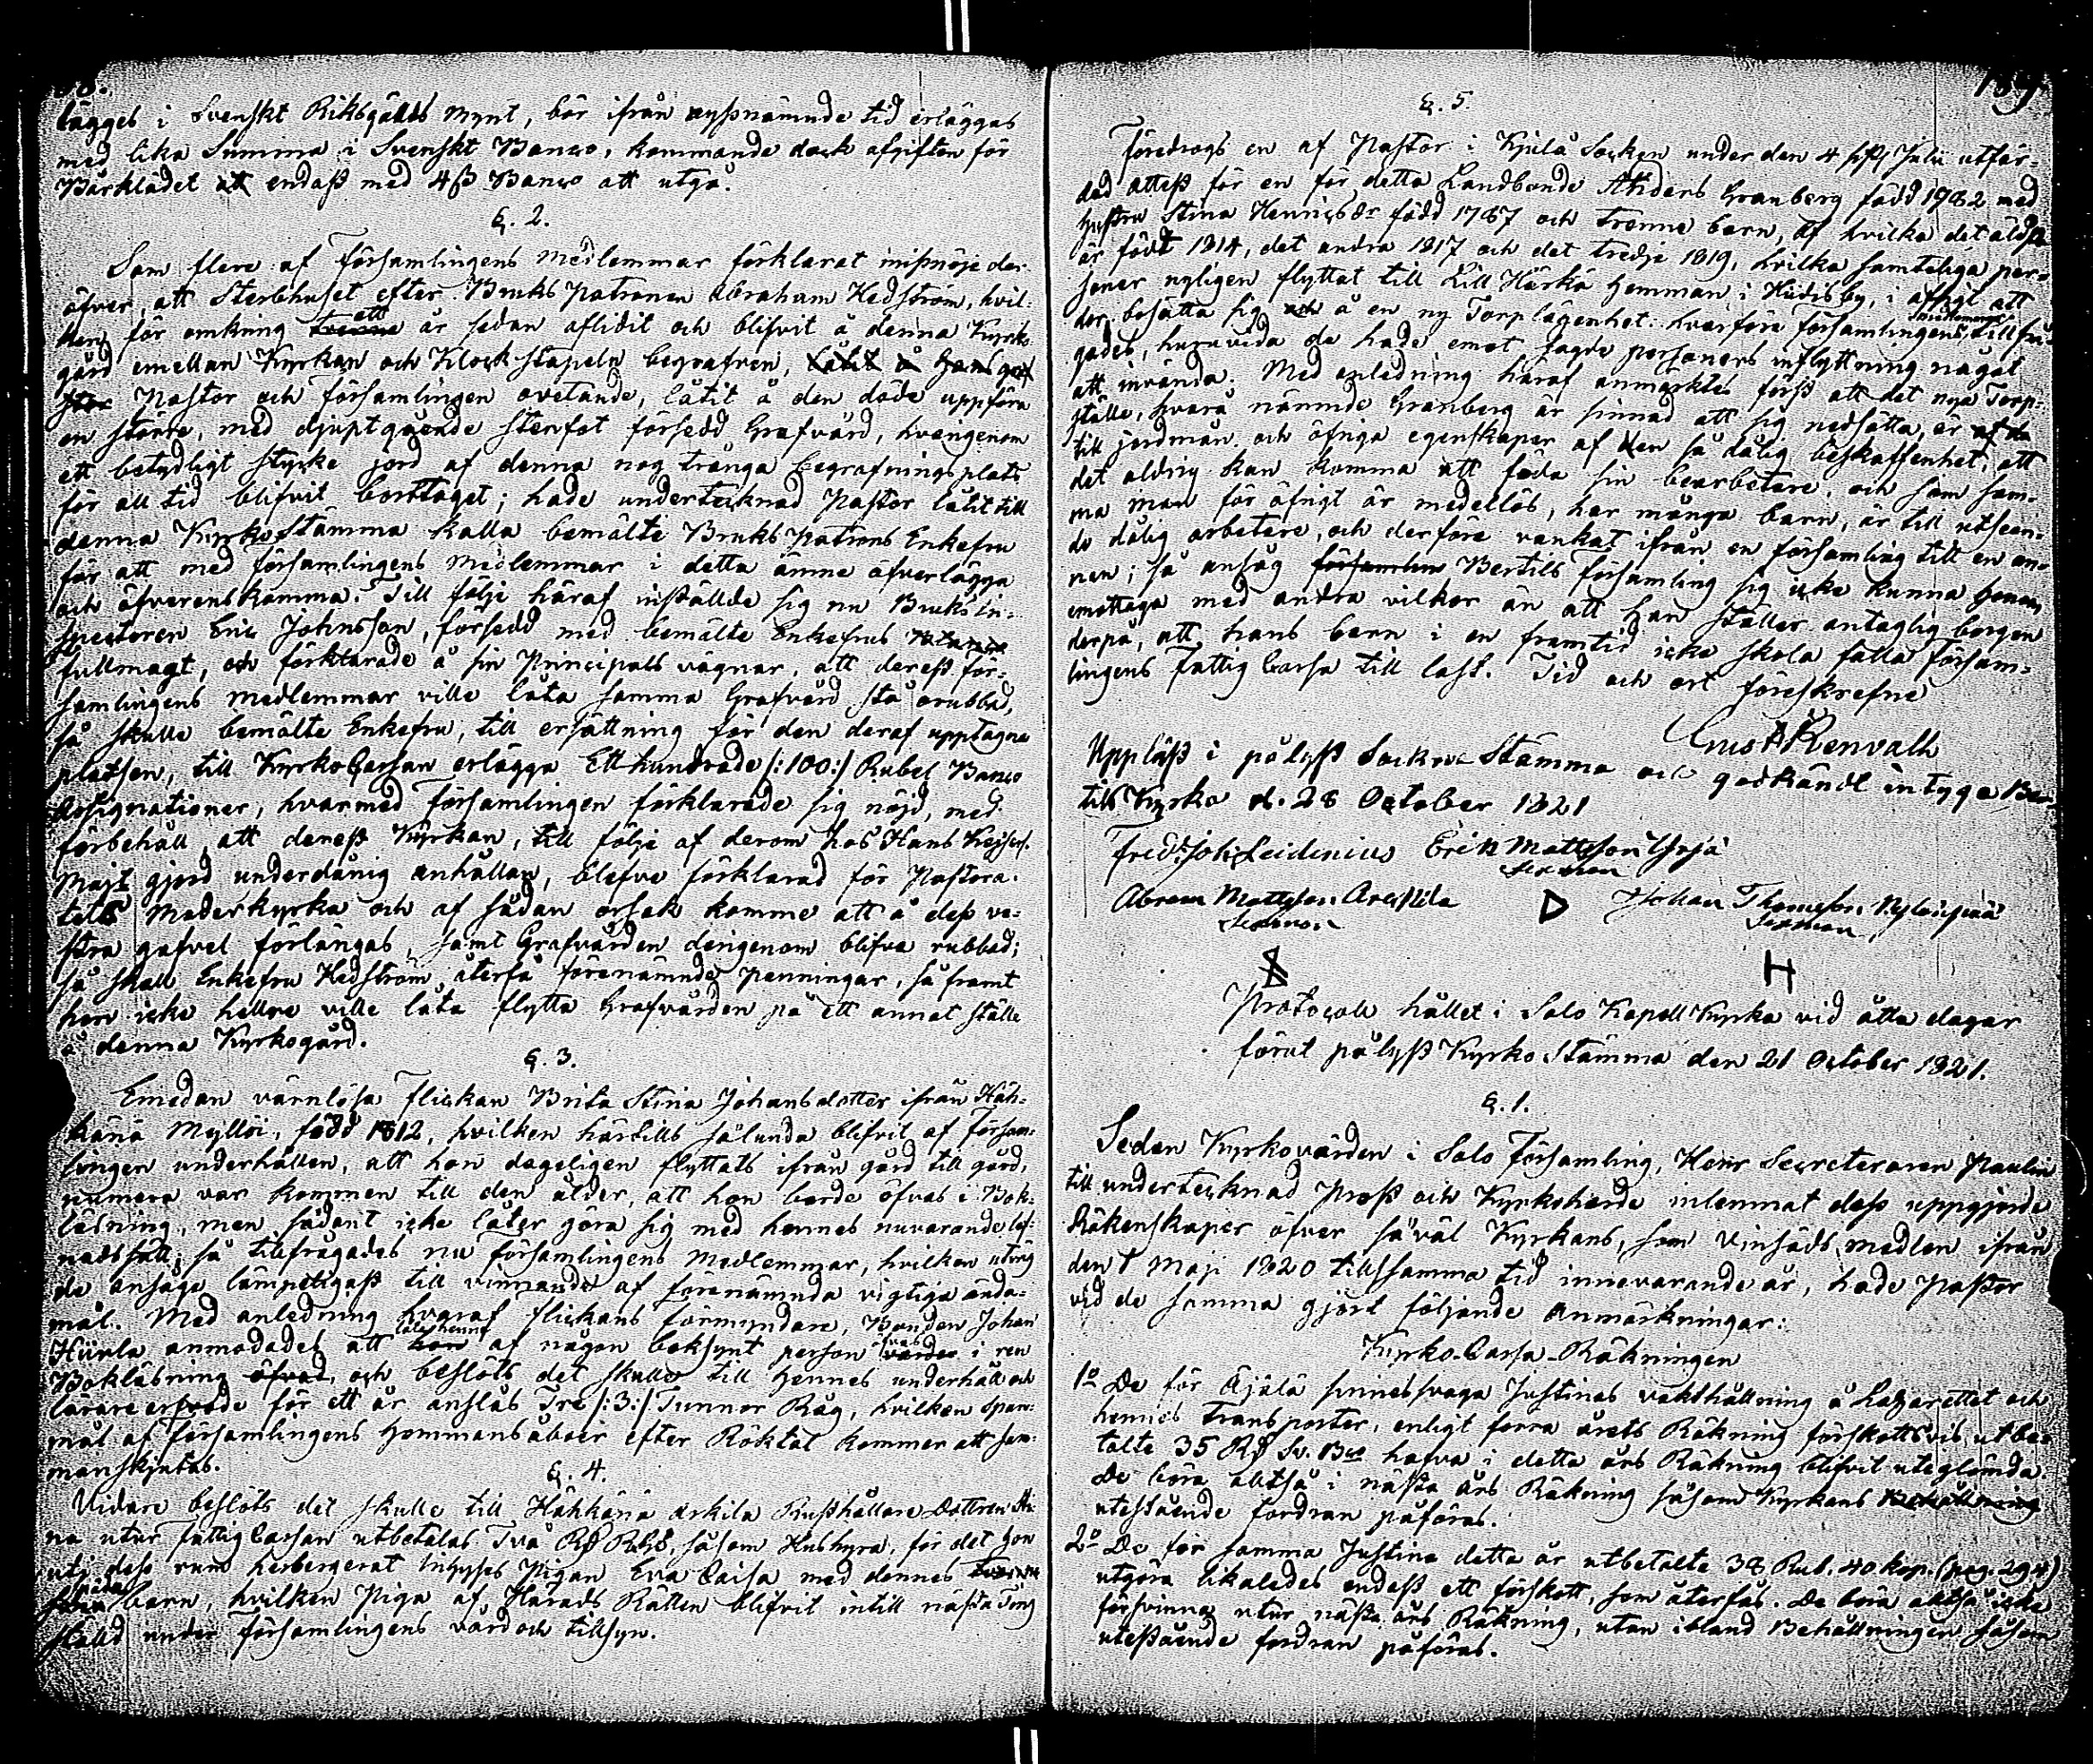 lägges i Svenskt Riksgälds mynt, bör ifrån nyssnämnde tid erläggas
med lika Summa i Svenskt Banco, kommande dock afgiften för
Bårklädet att endast med 4 ß Banco att utgå.
§. 2.
Som flere af Församlingens medlemmar förklarat missnöje der-
öfver, att Sterbhuset efter Bruks Patronen Abraham Hedström, hvil-
ken för omkring ett år sedan aflidit och blifvit å denna Kyrko-
gård emellan Kyrkan och Klockstapeln begrafven, låtit å hans graf
Pastor och församlingen ovetande, låtit å den döde uppföra
en större, med djuptgående stenfot försedd Grafvård, hvarigenom
ett betydligt stycke jord af denna nog trånga Begrafningsplats
för all tid blifvit borttaget; hade undertecknad Pastor låtit till
denna Kyrkostämma kalla bemälte Bruks Patrons Enkefru
för att med församlingens medlemmar i detta ämne öfverlägga
och öfverenskomma. Till följe häraf inställde sig nu Bruksin-
spectoren Eric Johnsson, försedd med bemälte Enkefrus
fullmagt, och förklarade å sin Principals vägnar, att derest för-
samlingens medlemmar ville låta samma Grafvård stå orubbad,
så skulle bemälte Enkefru, till ersättning för den deraf upptagna
platsen, till KyrkoCassan erlägga Etthundrade /:100:/ Rubel Banco
Assignationer, hvarmed Församlingen förklarade sig nöjd, med
förbehåll, att derest Kyrkan, till följe af derom hos Hans Kejserl.
Majt gjord underdånig anhållan, blefve förklarad för Pastora-
tets Moderkyrka och af sådan orsak komme att å dess ve-
stra gafvel förlängas, samt Grafvården derigenom blifva rubbad;
så skall Enkefru Hedström återfå förenämnde penningar, så framt
hon icke hellre ville låta flytta Grafvården på ett annat ställe
å denna Kyrkogård.
§. 3.
Emedan värnlösa Flickan Brita Stina Johansdotter ifrån Häh-
känä Mylloi, född 1812, hvilken härtills sålunda blifvit af Försam-
lingen underhållen, att hon dageligen flyttats ifrån gård till gård,
numera var kommen till den ålder, att hon borde öfvas i Bok-
läsning, men sådant icke låter göra sig med hennes nuvarande lef-
nadssätt; så tillfrågades nu Församlingens medlemmar, hvilken utväg
de ansåge lämpeligast till vinnandet af förenämnda vigtiga ända-
mål. Med anledning hvaraf flickans förmyndare, Bonden Johan
Hiirla anmodades att hon låta henne af någon boksynt person öfvas i ren
Bokläsning öfvad, och beslöts det skulle till hennes underhåll och
lärarearfvode för ett år anslås Tre /:3:/ Tunnor Råg, hvilken span-
mål af Församlingens hemmansåboer efter Röktal kommer att sam-
manskjutas.
§. 4.
Vidare beslöts det skulle till Hähkänä Arkila Rusthållare Dottren
na utur FattigCassan utbetalas Två R:d R:gs, såsom Hushyra, för det hon
uti dess rum herbergerat inhyses Pigan Eva Caisa med dennes
späda barn, hvilken Piga af Härads Rätten blifvit intill nästa Ting
ställd under Församlingens vård och tillsyn.
139.
§. 5.
Föredrogs en af Pastor i Kjulå Socken under den 4 sistl. Julii utfär-
dad attest för en för detta Landbonde Anders Granberg född 1782 med
hustru Stina Henricsdr född 1787 och trenne barn, af hvilka det äldsta
är födt 1814, det andra 1817 och det tredje 1819, hvilka samteliga per-
soner nyligen flyttat till Lill Härkä hemman i Hidis by, i afsigt att
der bosätta sig och å en ny Torplägenhet: hvarföre församlingens medlemmar tillfrå-
gades, huruvida de hade emot sagde personers inflyttning något
att invända. Med anledning häraf anmärktes först att det nya Torp-
ställe, hvarå nämnde Granberg är sinnad att sig nedsätta, är af de
till jordmån och öfriga egenskaper af den så dålig beskaffenhet, att
det aldrig kan komma att föda sin bearbetare, och som sam-
ma man för öfrigt är medellös, har många barn, är till utseen-
de dålig arbetare, och derföre vankat ifrån en församling till en an-
nen; så ansåg församlin Bertils Församling sig icke kunna honom
emottaga med andra vilkor än att han ställer antaglig borgen
derpå, att hans barn i en framtid icke skola falla försams-
lingens FattigCassa till last. Tid och ort föreskrefne
Gust. A. Renvall
Uppläst i pålyst Sockne Stämma och godkändt intyga Ber-
tils Kyrka d. 28 October 1821
Fredr. Joh. Leidenius Erik Mattsson Yrjä
Sexman
Abram Mattsson Arckila Johan Thomsson
Sexman Sexman
Protocoll hållet i Salo Kapell Kyrka vid åtta dagar
förut pålyst Kyrko Stämma den 21 October 1821.
§. 1.
Sedan Kyrkovärden i Salo Församling, Herr Secreteraren Paulin
till undertecknad Prost och Kyrkoherde inlemnat dess uppgjorde
Räkenskaper öfver såväl Kyrkans, som Vinsäds medlen ifrån
den 1 Maji 1820 till samma tid innevarande år, hade Pastor
vid de samma gjort följande Anmärkningar:
Kyrko-Cassa-Räkningen
1o De för Äjälä sinnessvaga Justinas vakthållning å Lazarettet och
hennes transporter, enligt förra årets Räkning förskottsvis utbe-
talte 35 Rd Sv. Bco hafva i detta års Räkning blifvit uteglömda.
De böra alltså i nästa års Räkning såsom Kyrkans Behållning
utestående fordran påföras.
2o De för samma Justina detta år utbetalte 38 Rub. 40 kop. (pag. 294)
utgöra likaledes endast ett förskott, som återfås. De böra alltså icke
försvinna utur nästa års Räkning, utan ibland Behållningen såsom
utestående fordran påföras.